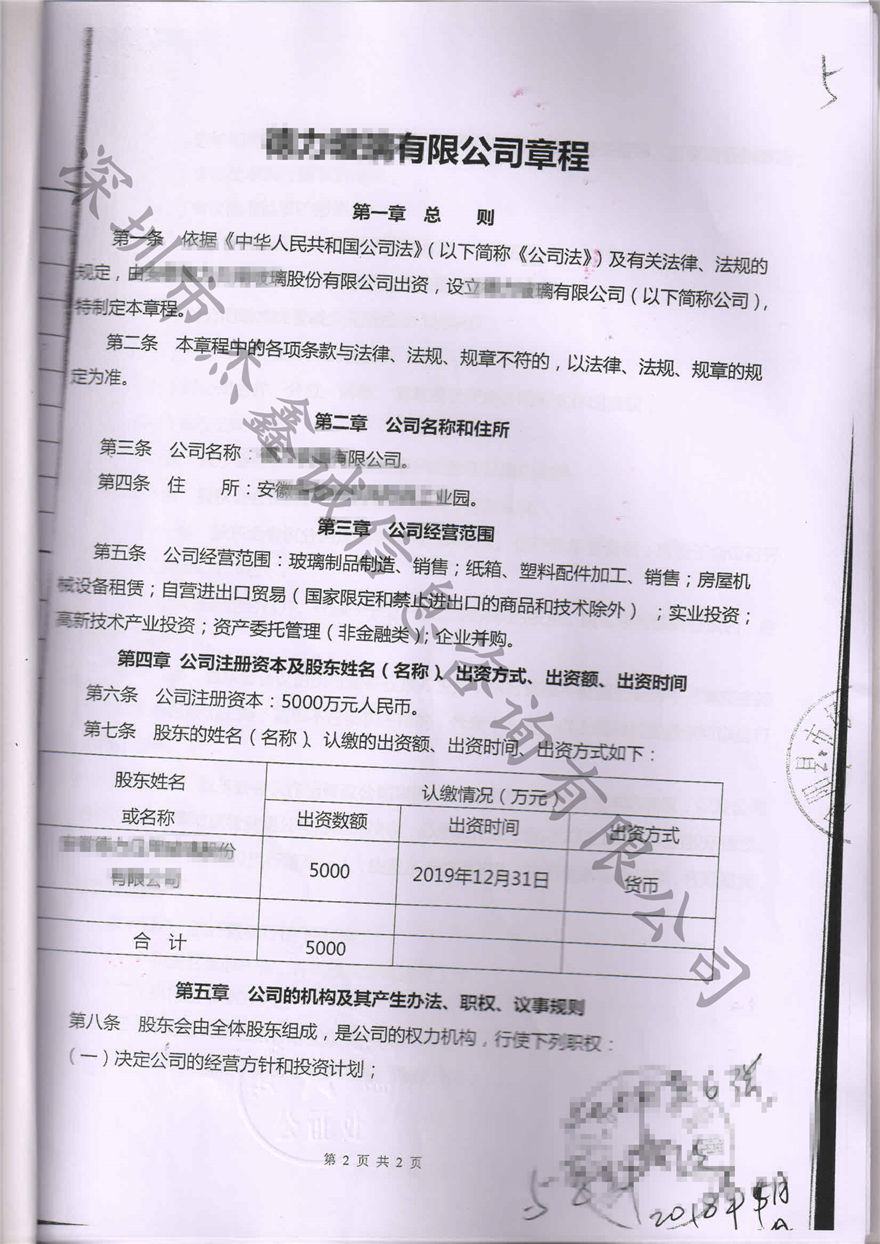 5
有限公司章程
第一章 总 则
第一条 依据《中华人民共和国公司法》(以下简称《公司法》)及有关法律、法规的
规定,由 玻璃股份有限公司出资,设立 玻璃有限公司(以下简称公司),
特制定本章程。
第二条 本章程中的各项条款与法律、法规、规章不符的,以法律、法规、规章的规
定为准。
第二章 公司名称和住所
第三条 公司名称: 有限公司。
第四条 住 所:安徽 工业园。
第三章 公司经营范围
第五条 公司经营范围:玻璃制品制造、销售;纸箱、塑料配件加工、销售;房屋机
械设备租赁;自营进出口贸易(国家限定和禁止进出口的商品和技术除外) ;实业投资;
高新技术产业投资;资产委托管理(非金融类);企业并购。
第四章 公司注册资本及股东姓名(名称)、出资方式、出资额、出资时间
第六条 公司注册资本:5000万元人民币。
第七条 股东的姓名(名称)、认缴的出资额、出资时间、出资方式如下:
股东姓名
或名称
认缴情况(万元)
出资数额 出资时间 出资方式
股份
有限公司
5000 2019年12月31日 货币
合 计 5000
第五章 公司的机构及其产生办法、职权、议事规则
第八条 股东会由全体股东组成,是公司的权力机构,行使下列职权:
(一)决定公司的经营方针和投资计划;
第 2 页 共 2 页
深圳市杰鑫诚信息咨询有限公司
县市